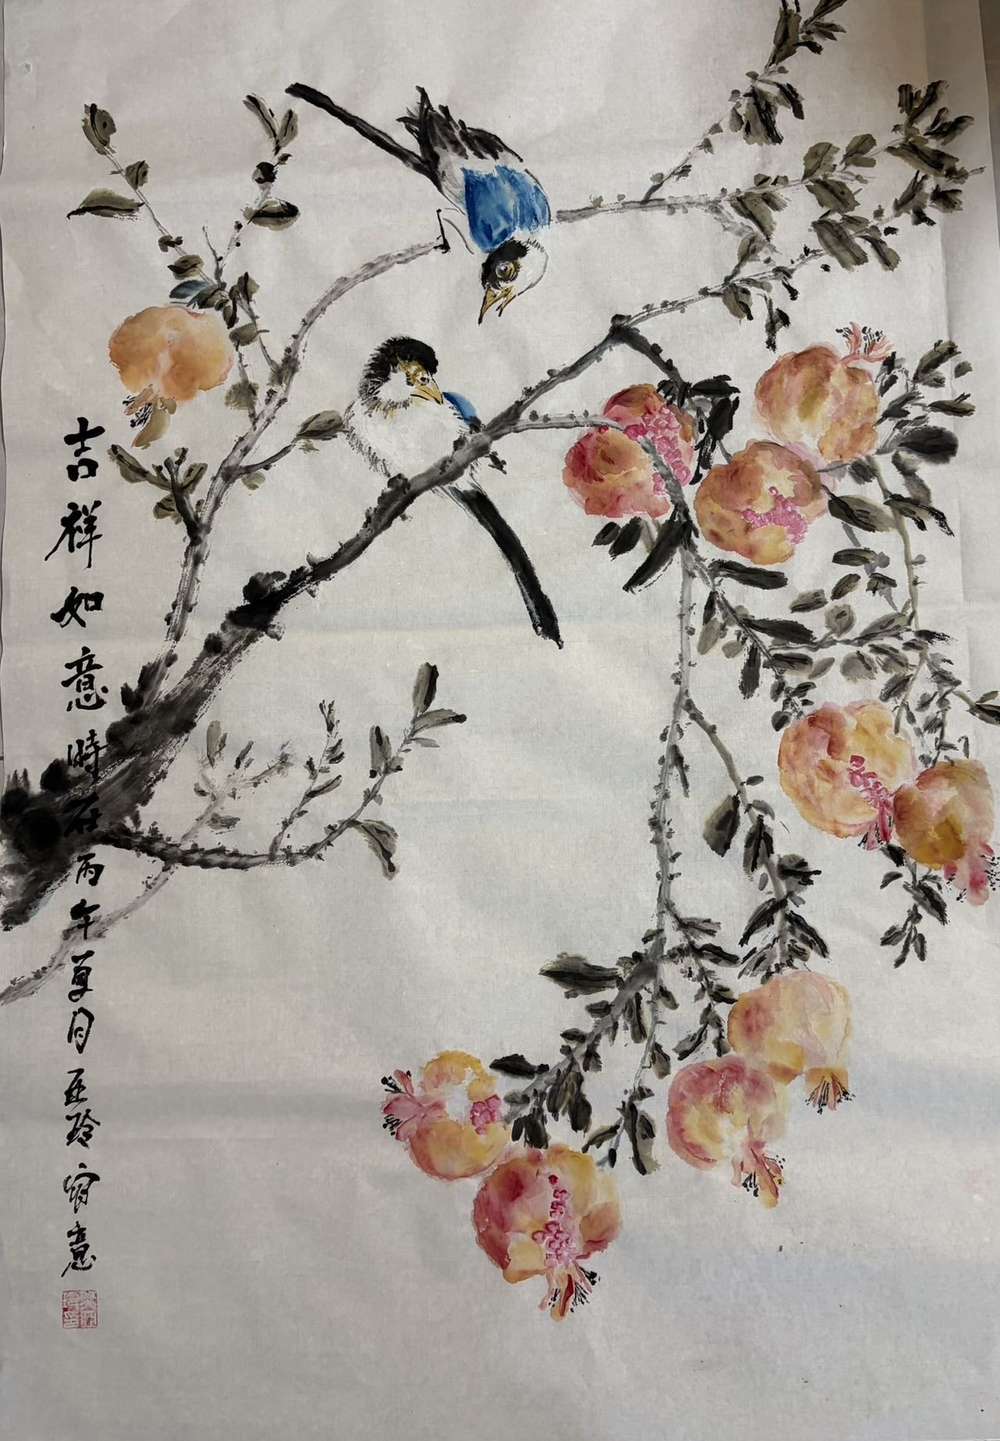 吉祥如意時在丙午夏月亚玲写意